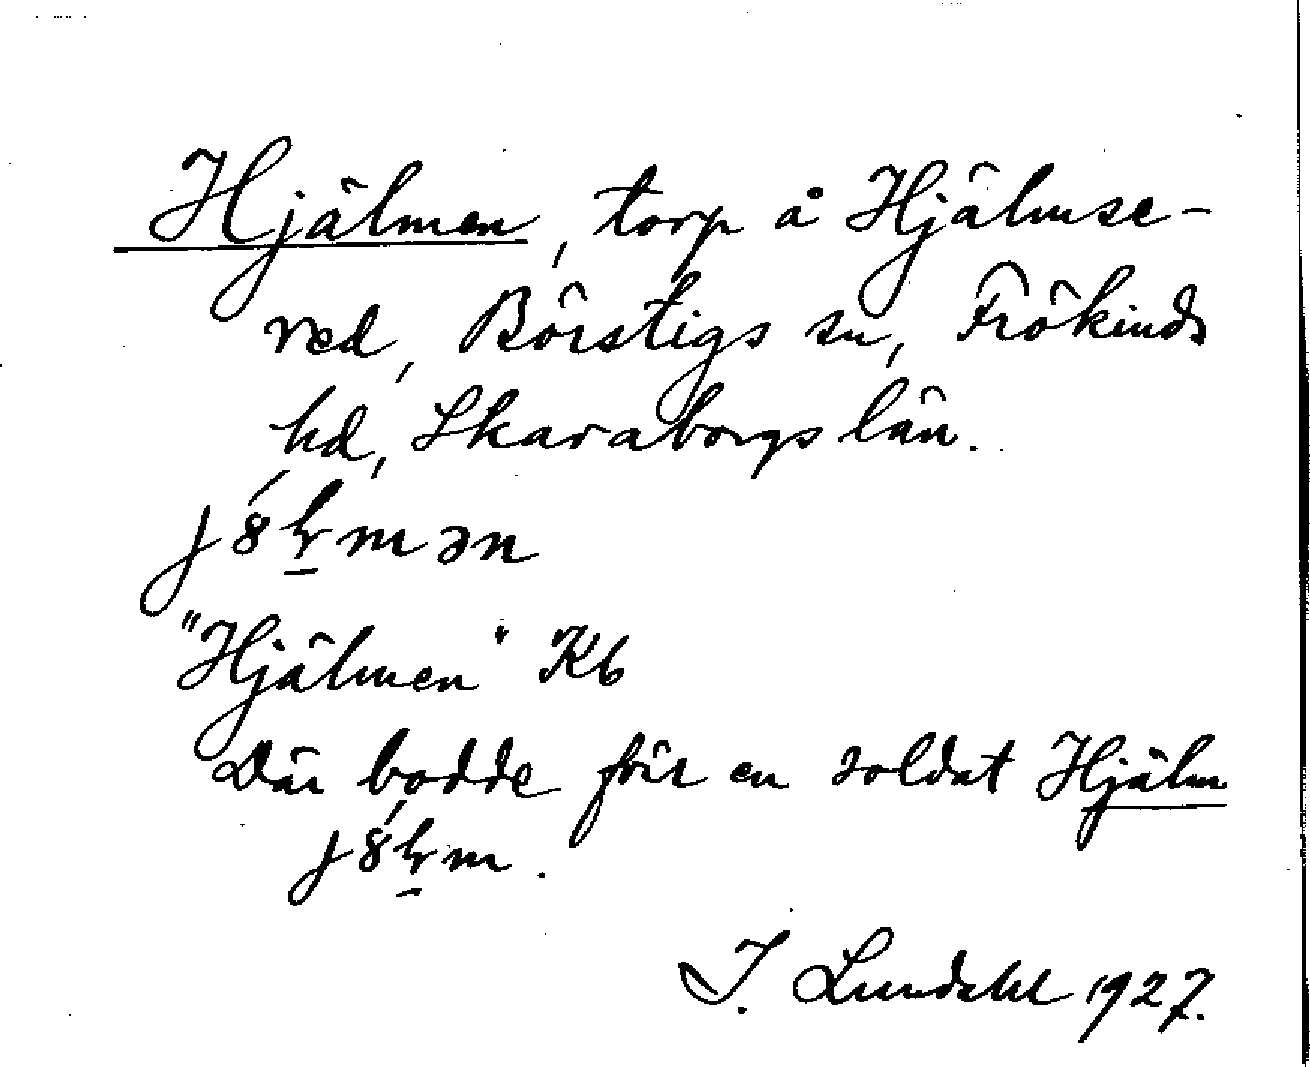 Hjälmen, torp å Hjälmse-
ved, Börstigs sn, Frökinds
hd, Skaraborgs län.
"Hjälmen" Kb
Där bodde förr en soldat Hjälm
I. Lundahl 1927.